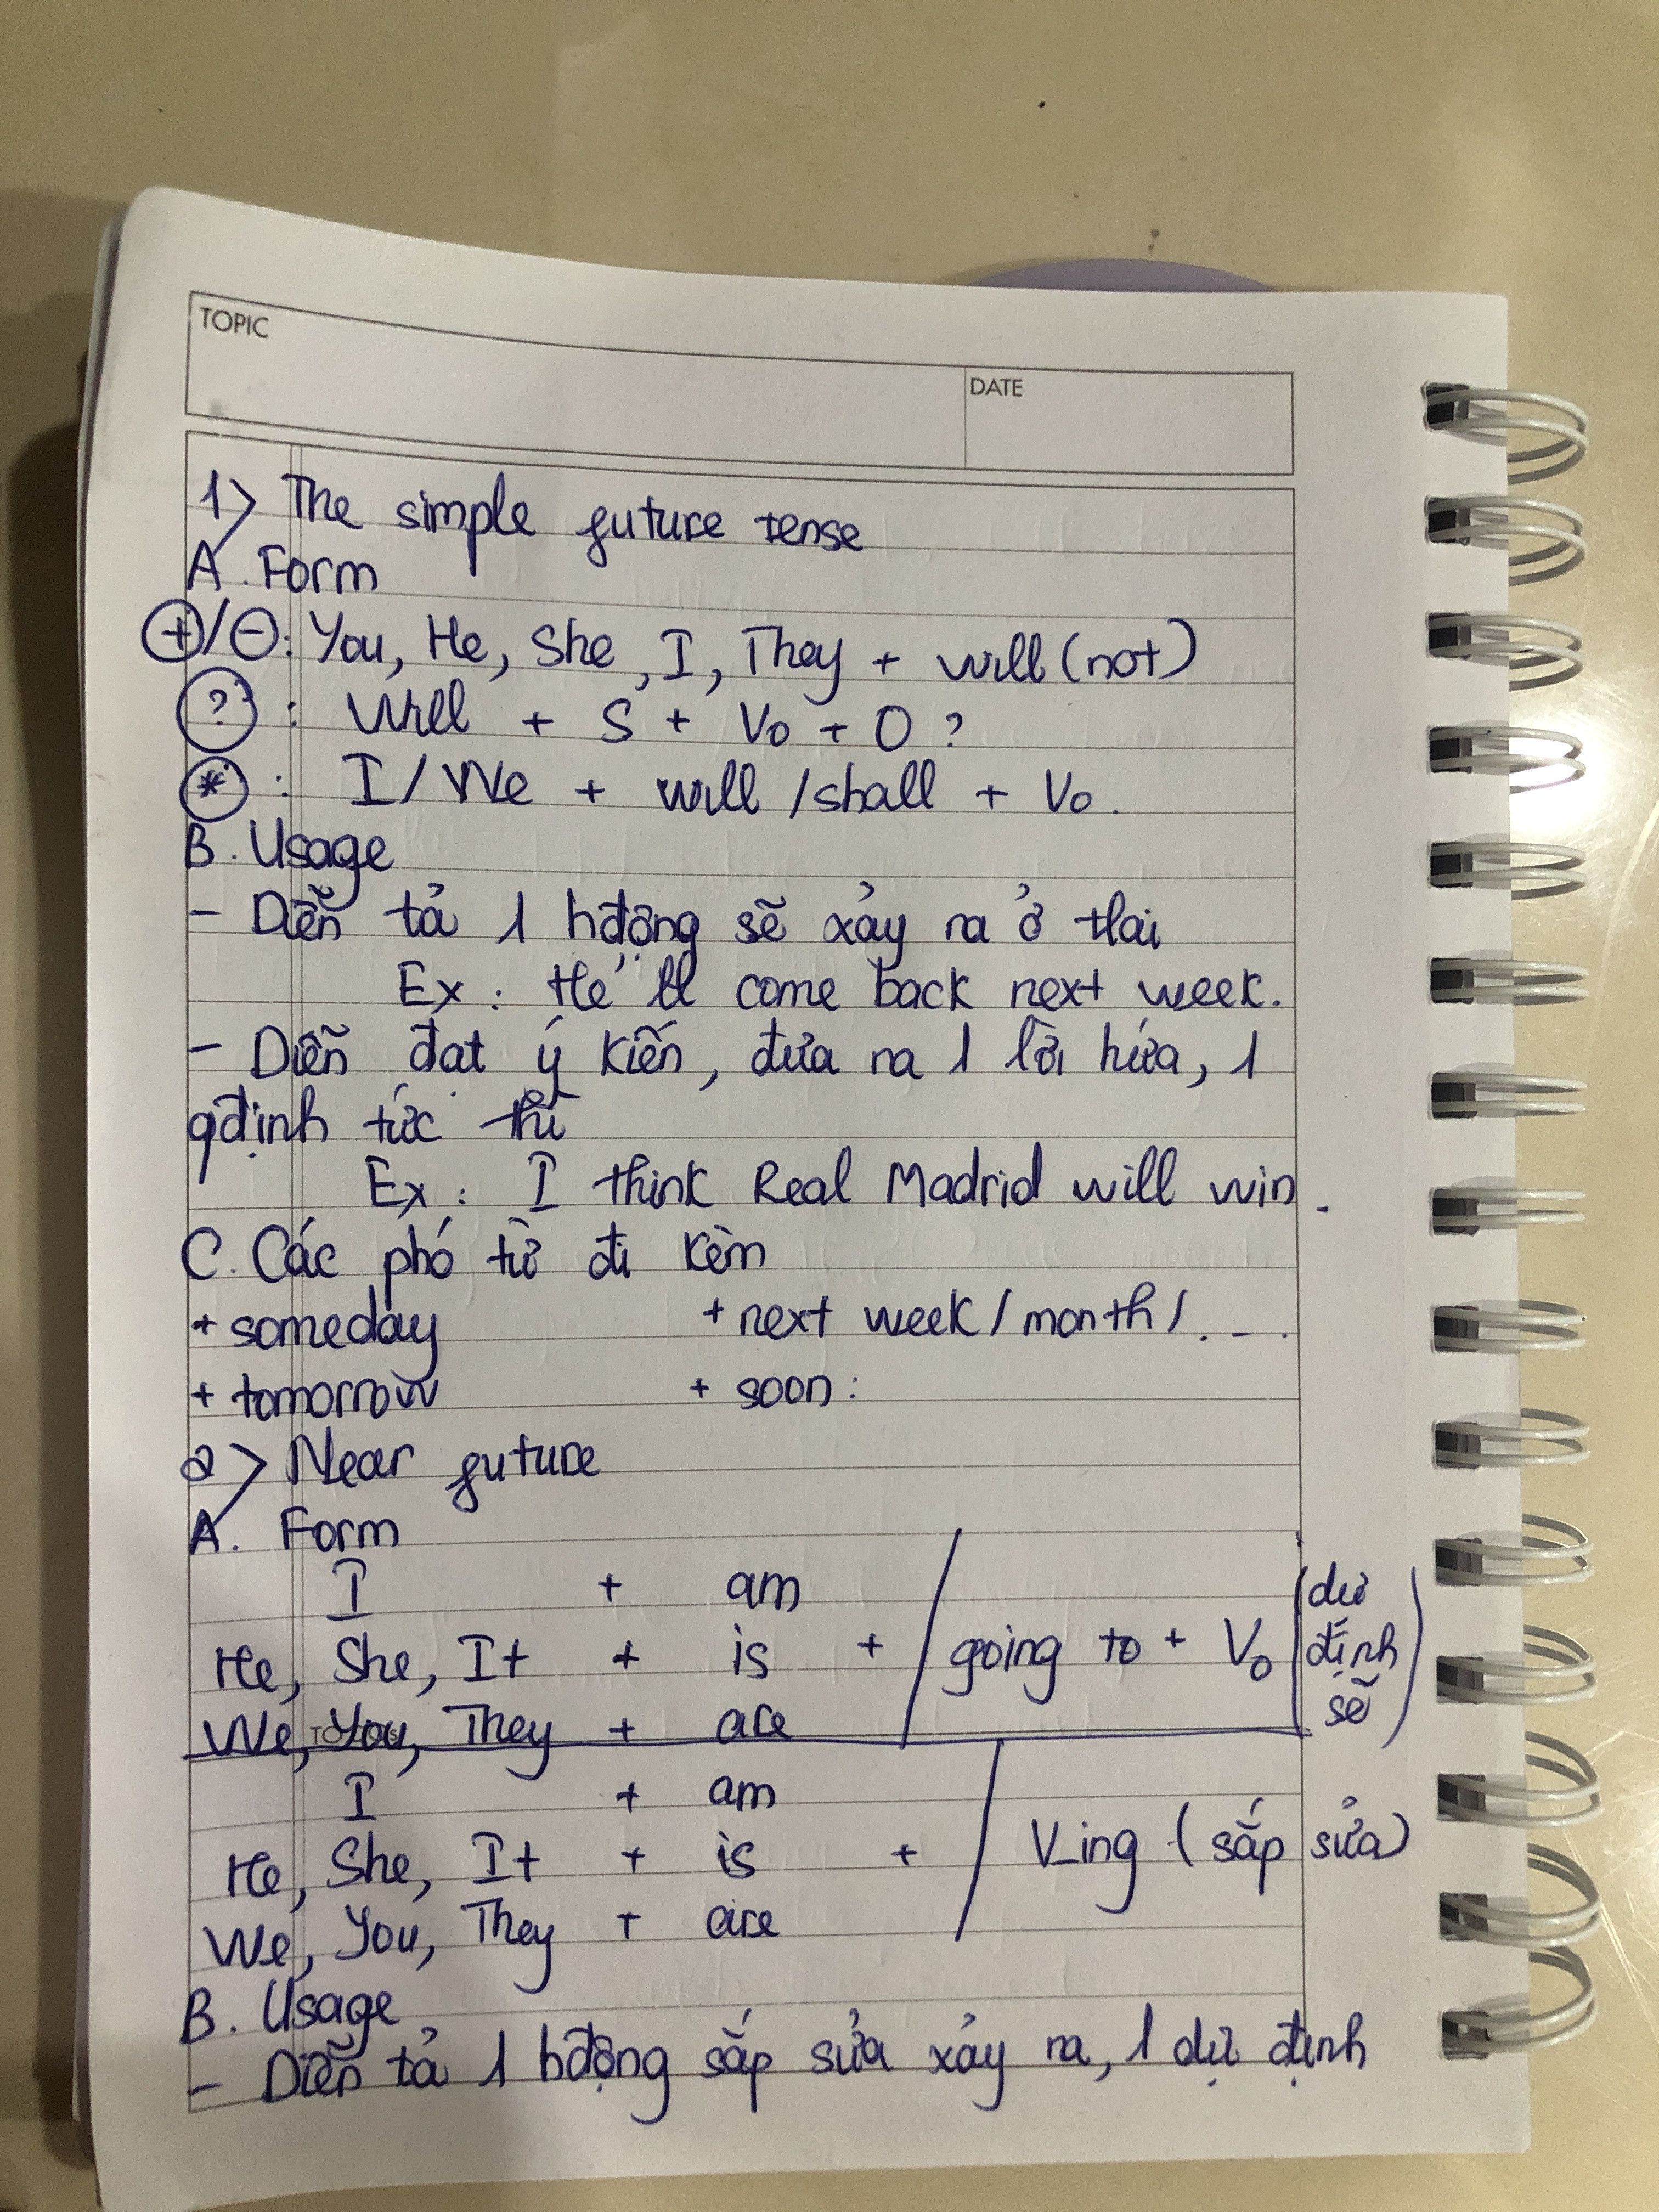 TOPIC
DATE
1> The simple future tense
A. Form
(+)/(-): You, He, She, I, They + will (not)
(?): Will + S + Vo + O ?
(*): I/We + will /shall + Vo.
B. Usage
- Diễn tả 1 hđộng sẽ xảy ra ở tlai
Ex: He'll come back next week.
- Diễn đạt ý kiến, đưa ra 1 lời hứa, 1
qđịnh tức thì
Ex: I think Real Madrid will win.
C. Các phó từ đi kèm
+ someday + next week / month / ....
+ tomorrow + soon:
2> Near future
A. Form
I + am
He, She, It + is + / going to + Vo (dự định sẽ)
We, You, They + are
I + am
He, She, It + is + / V_ing (sắp sửa)
We, You, They + are
B. Usage
- Diễn tả 1 hđộng sắp sửa xảy ra, 1 dự định